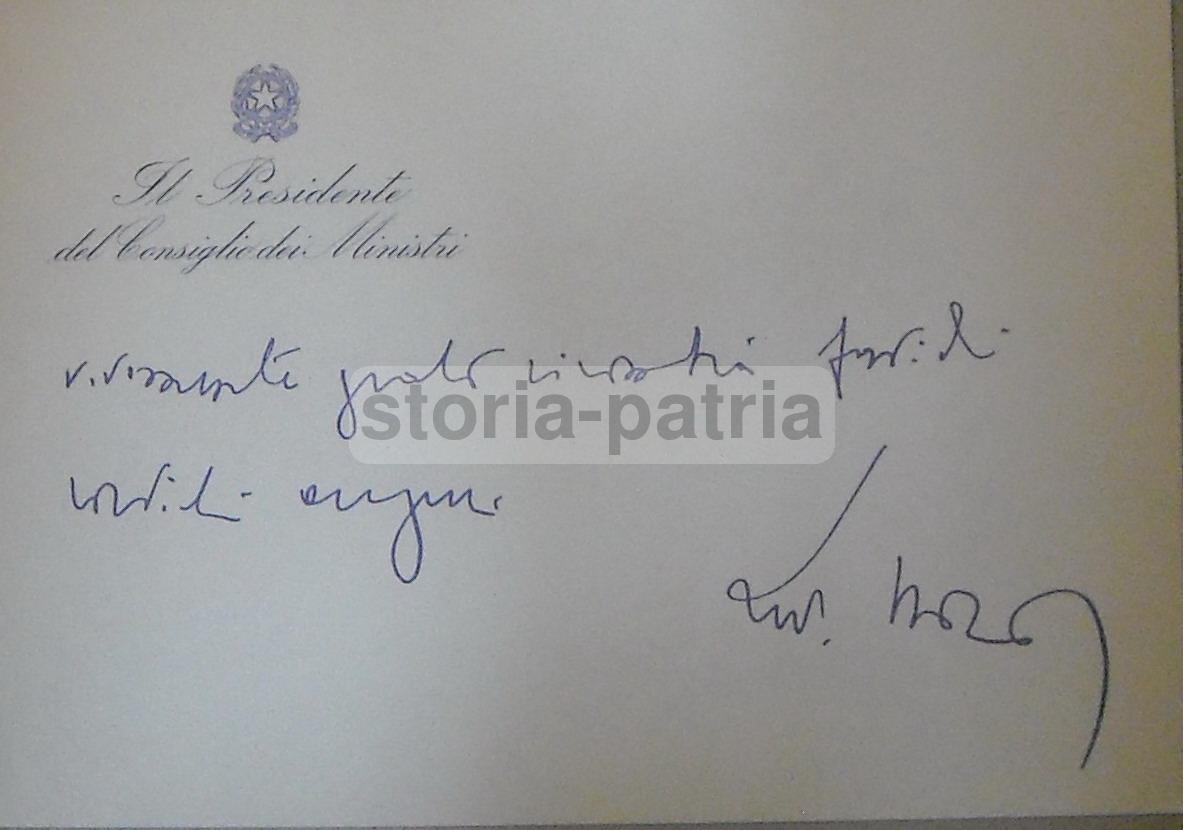 Il Presidente
del Consiglio dei Ministri
vivamente grato ricambia fervidi
storia-patria
cordiali auguri
Moro